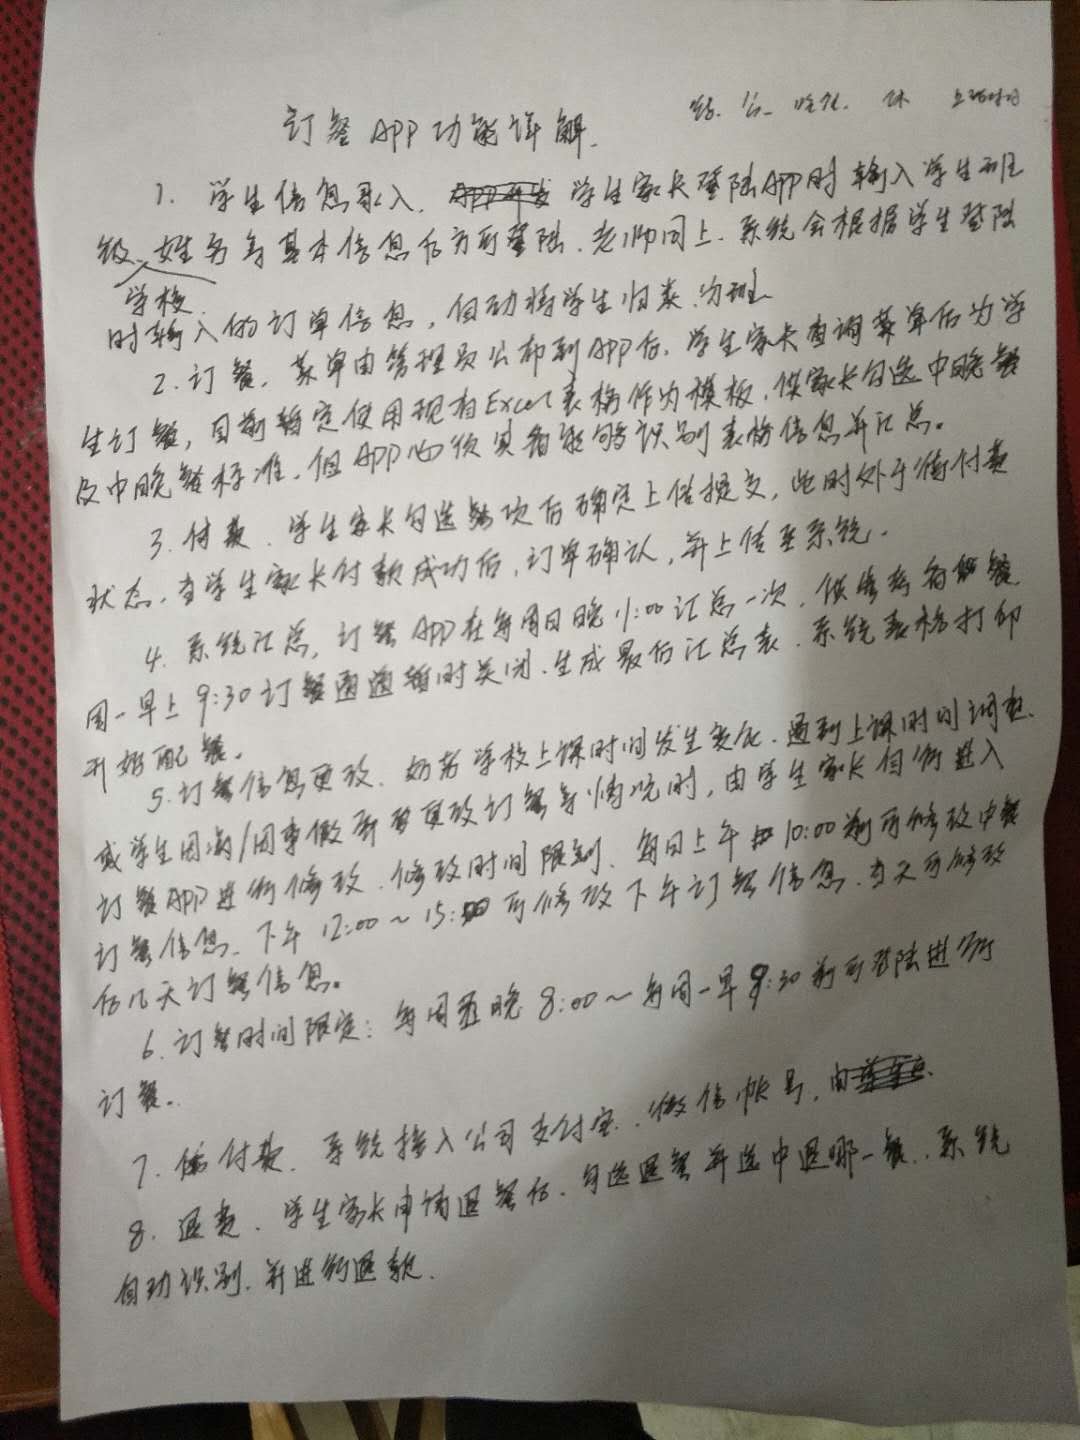 订餐APP功能详解.
1. 学生信息录入. 学生家长登陆APP时输入学生班
级、姓名等基本信息后方可登陆. 老师同上. 系统会根据学生登陆
学校
时输入的订单信息, 自动将学生归类.分班
2. 订餐. 菜单由管理员公布到APP后. 学生家长查调菜单后为学
生订餐, 目前暂定使用现有Excel表格作为模板. 供家长勾选中晚餐
及中晚餐标准. 但APP必须具备能够识别表格信息并汇总。
3. 付款. 学生家长勾选餐项后确定上传提交, 此时处于待付款
状态. 当学生家长付款成功后, 订单确认, 并上传至系统.
4. 系统汇总, 订餐APP在每周日晚11:00汇总一次. 供
周一早上9:30订餐通道暂时关闭. 生成最后汇总表. 系统表格打印
开始配餐。
5. 订餐信息更改. 如若学校上课时间发生变化. 遇到上课时间调整.
或学生因病/因事做需要更改订餐等情况时, 由学生家长自行进入
订餐APP进行修改. 修改时间限制. 每日上午10:00前可修改中餐
订餐信息. 下午12:00~15:00可修改下午订餐信息. 当天可修改
后几天订餐信息。
6. 订餐时间限定: 每周五晚8:00~每周一早9:30前可登陆进行
订餐。
7. 付款. 系统接入公司支付宝. 微信帐号. 由
8. 退费. 学生家长申请退餐后. 勾选退餐并选中退哪一餐.. 系统
自动识别. 并进行退款.